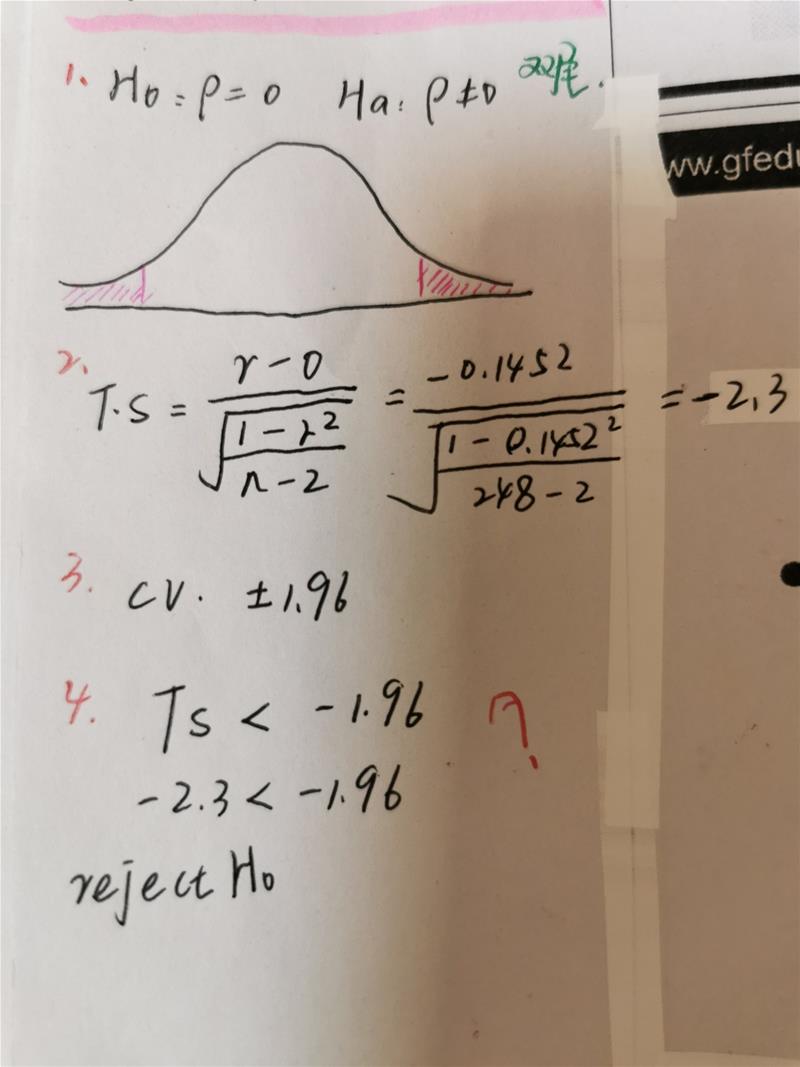 1. H0: ρ=0 Ha: ρ≠0 双尾.
www.gfedu
2. T.S = \frac{r-0}{\sqrt{\frac{1-r^2}{n-2}}} = \frac{-0.1452}{\sqrt{\frac{1-0.1452^2}{248-2}}} = -2.3
3. CV. ±1.96
4. Ts < -1.96 ?
-2.3 < -1.96
reject H0